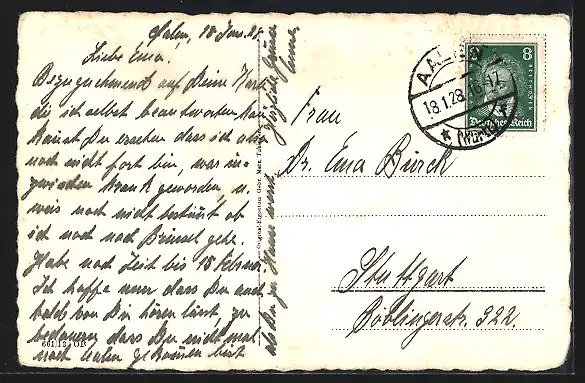 Aalen, 18 Jan. 28
Liebe Ema!
Bezugnehmend auf Deine Karte
die ich selbst beantworten kann
kannst Du ersehen dass ich also
noch nicht fort bin, war in-
zwischen krank geworden, u.
weis noch nicht bestimmt ob
ich noch nach Brüssel gehe.
Habe noch Zeit bis 15 Februar.
Ich hoffe nun dass Du auch
bald von Dir hören lässt, zu
bedauern dass Du nicht mal
nach Aalen gekommen bist
als Du zu Hause warst.
661/13 OB
AALEN
18.1.28. 16-17
* (Württ)
8 8
Deutsches Reich
Frau
Dr. Ema Bürck
Stuttgart
Böblingerstr. 322.